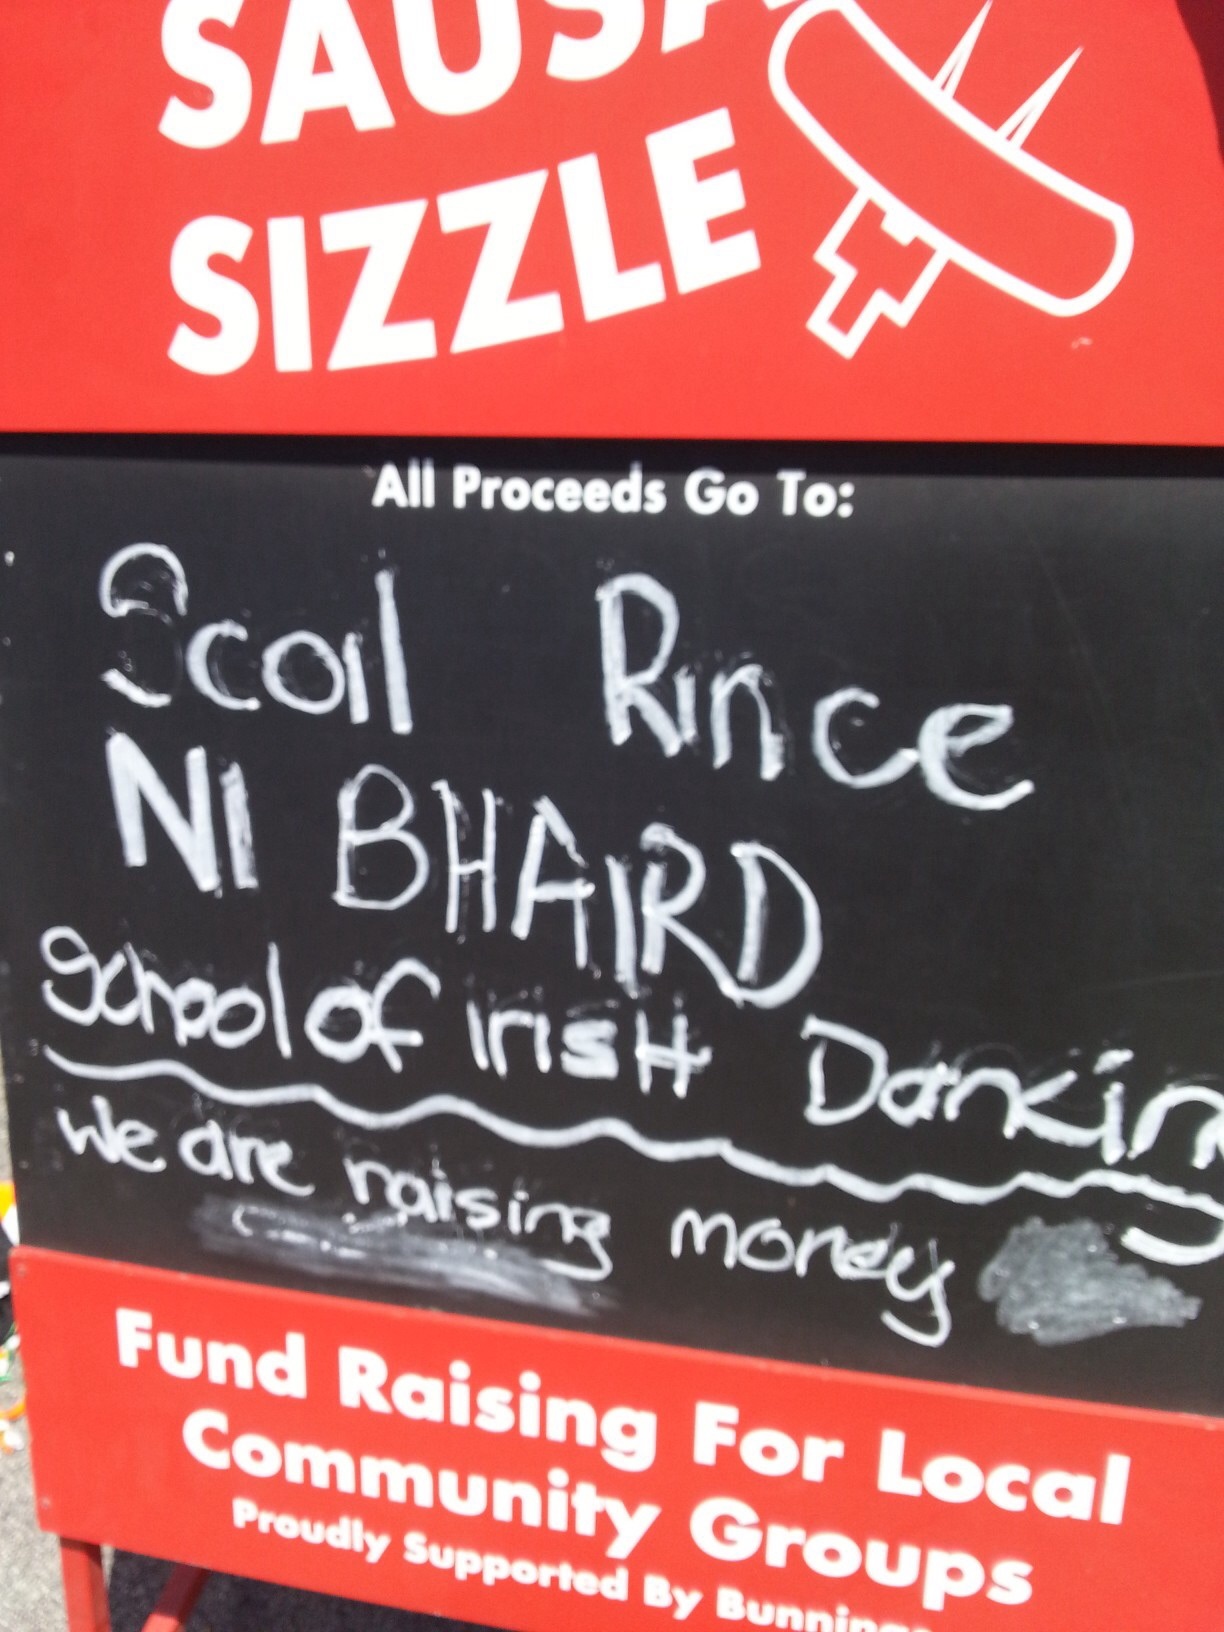 SAUSA
SIZZLE
All Proceeds Go To:
Scoil Rince
NI BHAIRD
School of Irish Dancing
We are raising money
Fund Raising For Local
Community Groups
Proudly Supported By Bunnings